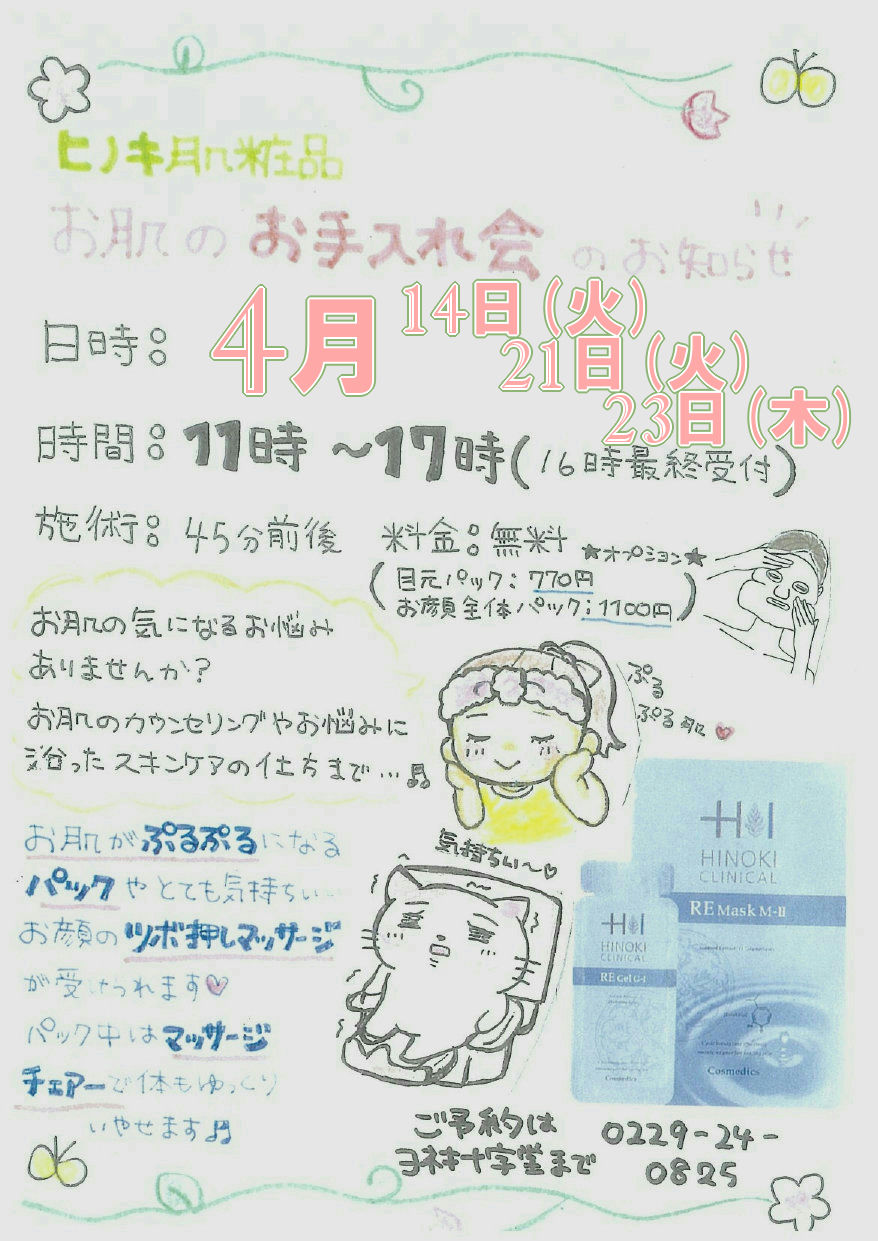 ヒノキ肌粧品
お肌の お手入れ会 のお知らせ
日時： 4月 14日（火）
21日（火）
23日（木）
時間：11時～17時（16時最終受付）
施術：45分前後 料金：無料 ★オプション★
（目元パック：770円
お顔全体パック：1100円）
お肌の気になるお悩み
ありませんか？
お肌のカウンセリングやお悩みに
沿ったスキンケアの仕方まで…♬
ぷる
ぷる肌♥
お肌がぷるぷるになる
パックやとても気持ちい〜
お顔のツボ押しマッサージ
が受けられます♡
パック中はマッサージ
チェアーで体もゆっくり
いやせます♬
気持ちぃ〜♡
HINOKI
CLINICAL
RE Mask M-II
Cosmedics
HINOKI
CLINICAL
RE Gel G-I
Cosmedics
ご予約は
ヨネキ十字堂まで
0229-24-
0825